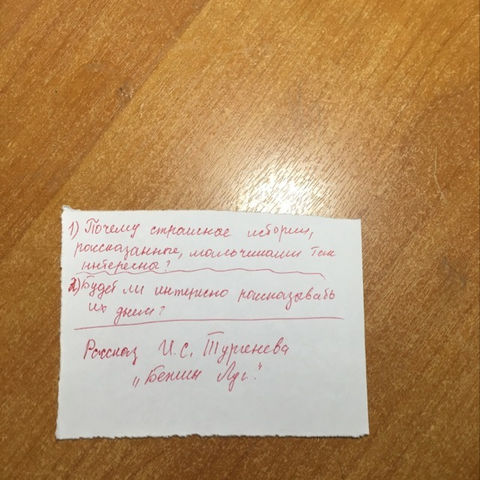 1) Почему страшные истории,
рассказанные, мальчиками так
интересны?
2) Будет ли интересно рассказывать
их днем?
Рассказ И.С. Тургенева
"Бежин Луг."